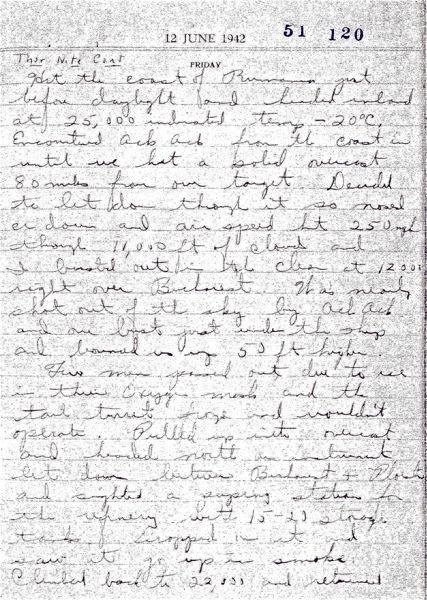 12 JUNE 1942 51 120
Thur Nite Cont
FRIDAY
Hit the coast of Rumania just
before daylight and headed inland
at 25,000 indicated temp -20°C.
Encountered Ack Ack from the coast in
until we hit a solid overcast
80 miles from our target. Decided
to let down through it so nosed
er down and air speed hit 250 mph
through 11,000 ft of cloud and
I busted out in the clear at 12000
right over Bucharest. Was nearly
shot out of the sky by Ack Ack
and one burst just under the ship
and bounced us up 50 ft higher.
Five men passed out due to ice
in their Oxygen mask and the
tail turret froze and wouldn't
operate. Pulled up into overcast
and headed north on instruments
let down between Bucharest + Ploesti
and sighted a pumping station for
the refinery with 15-20 storage
tanks. I dropped in it and
saw it go up in smoke.
Climbed back to 22,000 and returned